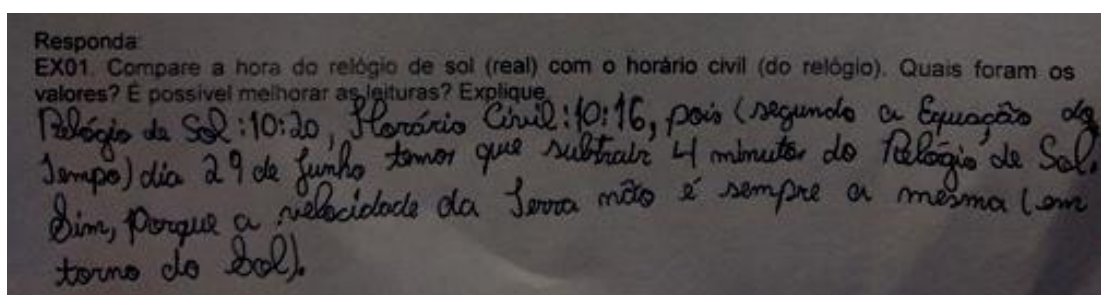 Responda:
EX01. Compare a hora do relógio de sol (real) com o horário civil (do relógio). Quais foram os
valores? É possível melhorar as leituras? Explique.
Relógio de Sol: 10:20, Horário Civil: 10:16, pois (segundo a Equação do
Tempo) dia 29 de Junho temos que subtrair 4 minutos do Relógio de Sol.
Sim, porque a velocidade da Terra não é sempre a mesma (em
torno do Sol).